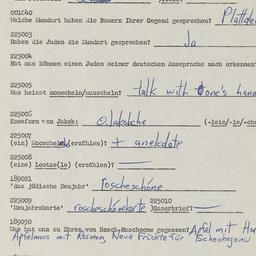 001C40
Welche Mundart haben die Bauern Ihrer Gegend gesprochen? Plattde
225003
Haben die Juden die Mundart gesprochen? Ja
225004
Hat man können einen Juden seiner deutschen Aussprache nach erkennen?
225005
Was heisst mooscheln/muuscheln? talk with one's hand
225005
Koseform von Jakob: Jakobche (-lein/-le/-che
225007
(ein) Mooschele (erzählen)? + anekdote
225008
(eine) Lootze(le) (erzählen)?
189021
'das jüdische Neujahr' roscheschöne
225009
'Neujahrskarte' roscheschönekarte 225010
189050
Was hat man zu Ihren von Rosch-Haschone gegessen? Apfel mit Hon
Apfelmoos mit Rosinen, Neue Früchte für